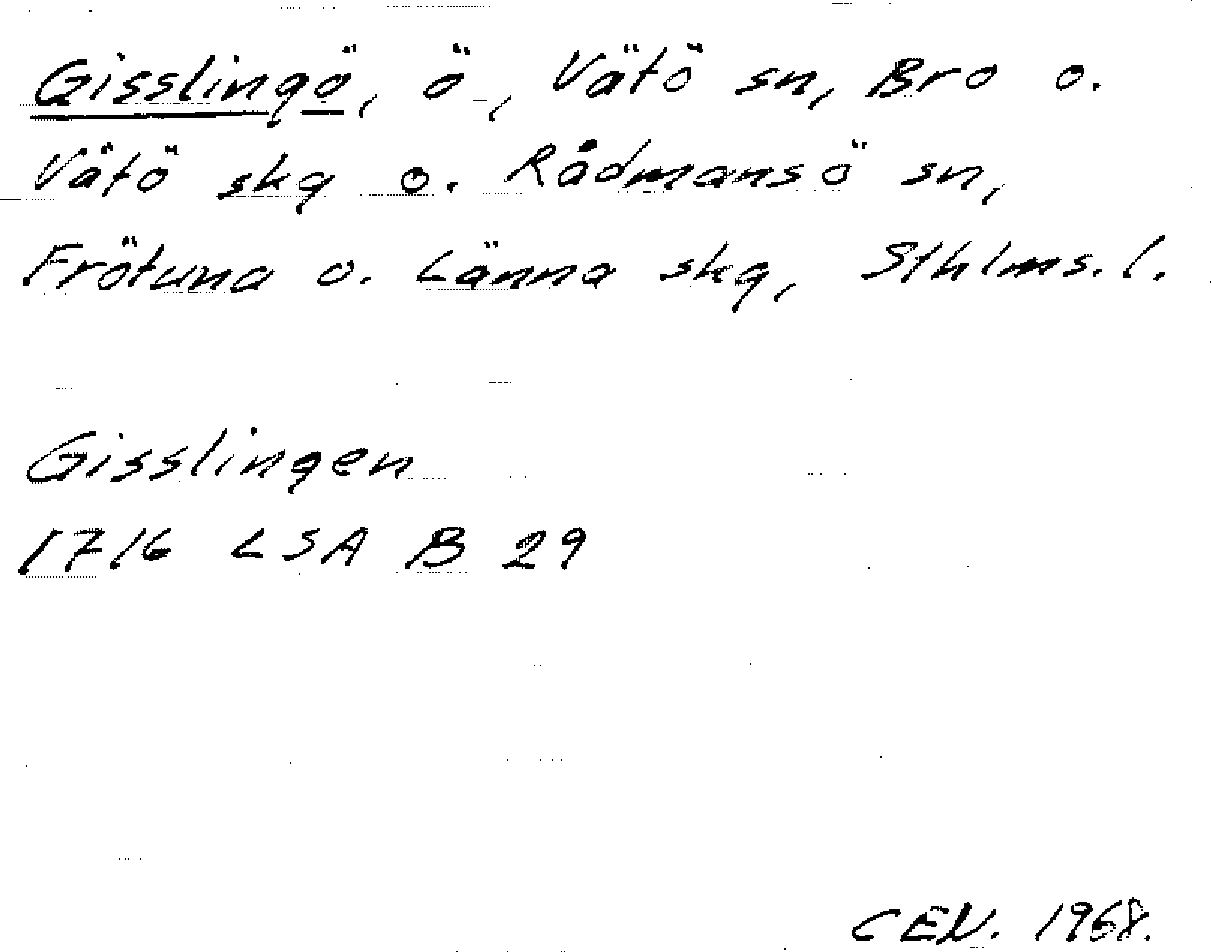 Gisslingö, ö, Vätö sn, Bro o.
Vätö skg o. Rådmansö sn,
Frötuna o. Länna skg, Sthlms. l.
Gisslingen
1716 LSA B 29
CEN. 1968.